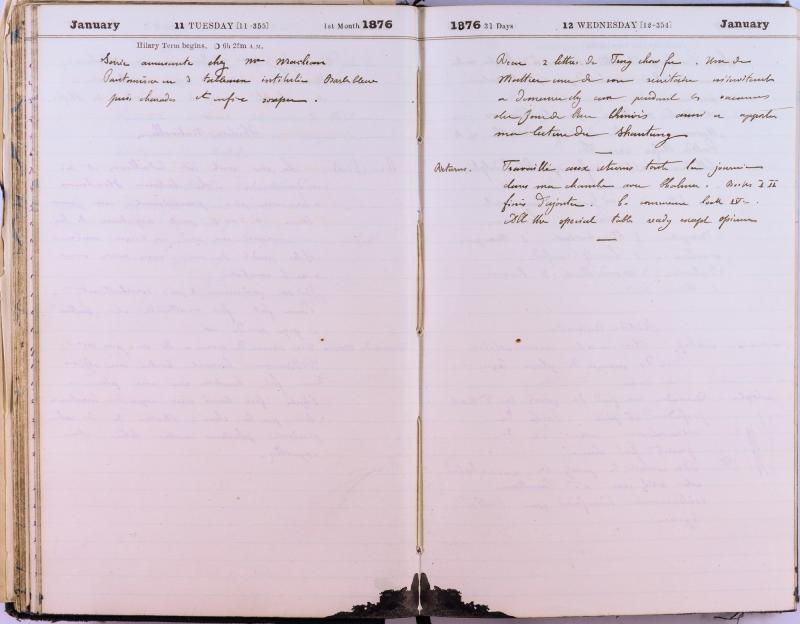 January 11 TUESDAY [11-355] 1st Month 1876
Hilary Term begins. 6h 21m A.M.
Soirée amusante chez Mr Maclean
Pantomime en 3 tableaux intitulée Barbe bleue
puis charades et enfin souper.
1876 31 Days 12 WEDNESDAY [12-354] January
Reçu 2 lettres de Tung chow fu. Une de
Matteer une de son
a pendant les vacances
du Jour de l'an Chinois aussi a apporter
ma lecture du Shantung
Returns. Travaillé aux returns toute la journée
dans ma chambre avec Holmes. Books I II
finis d'ajouter. Co. commence book IV.
All the special table ready except opium